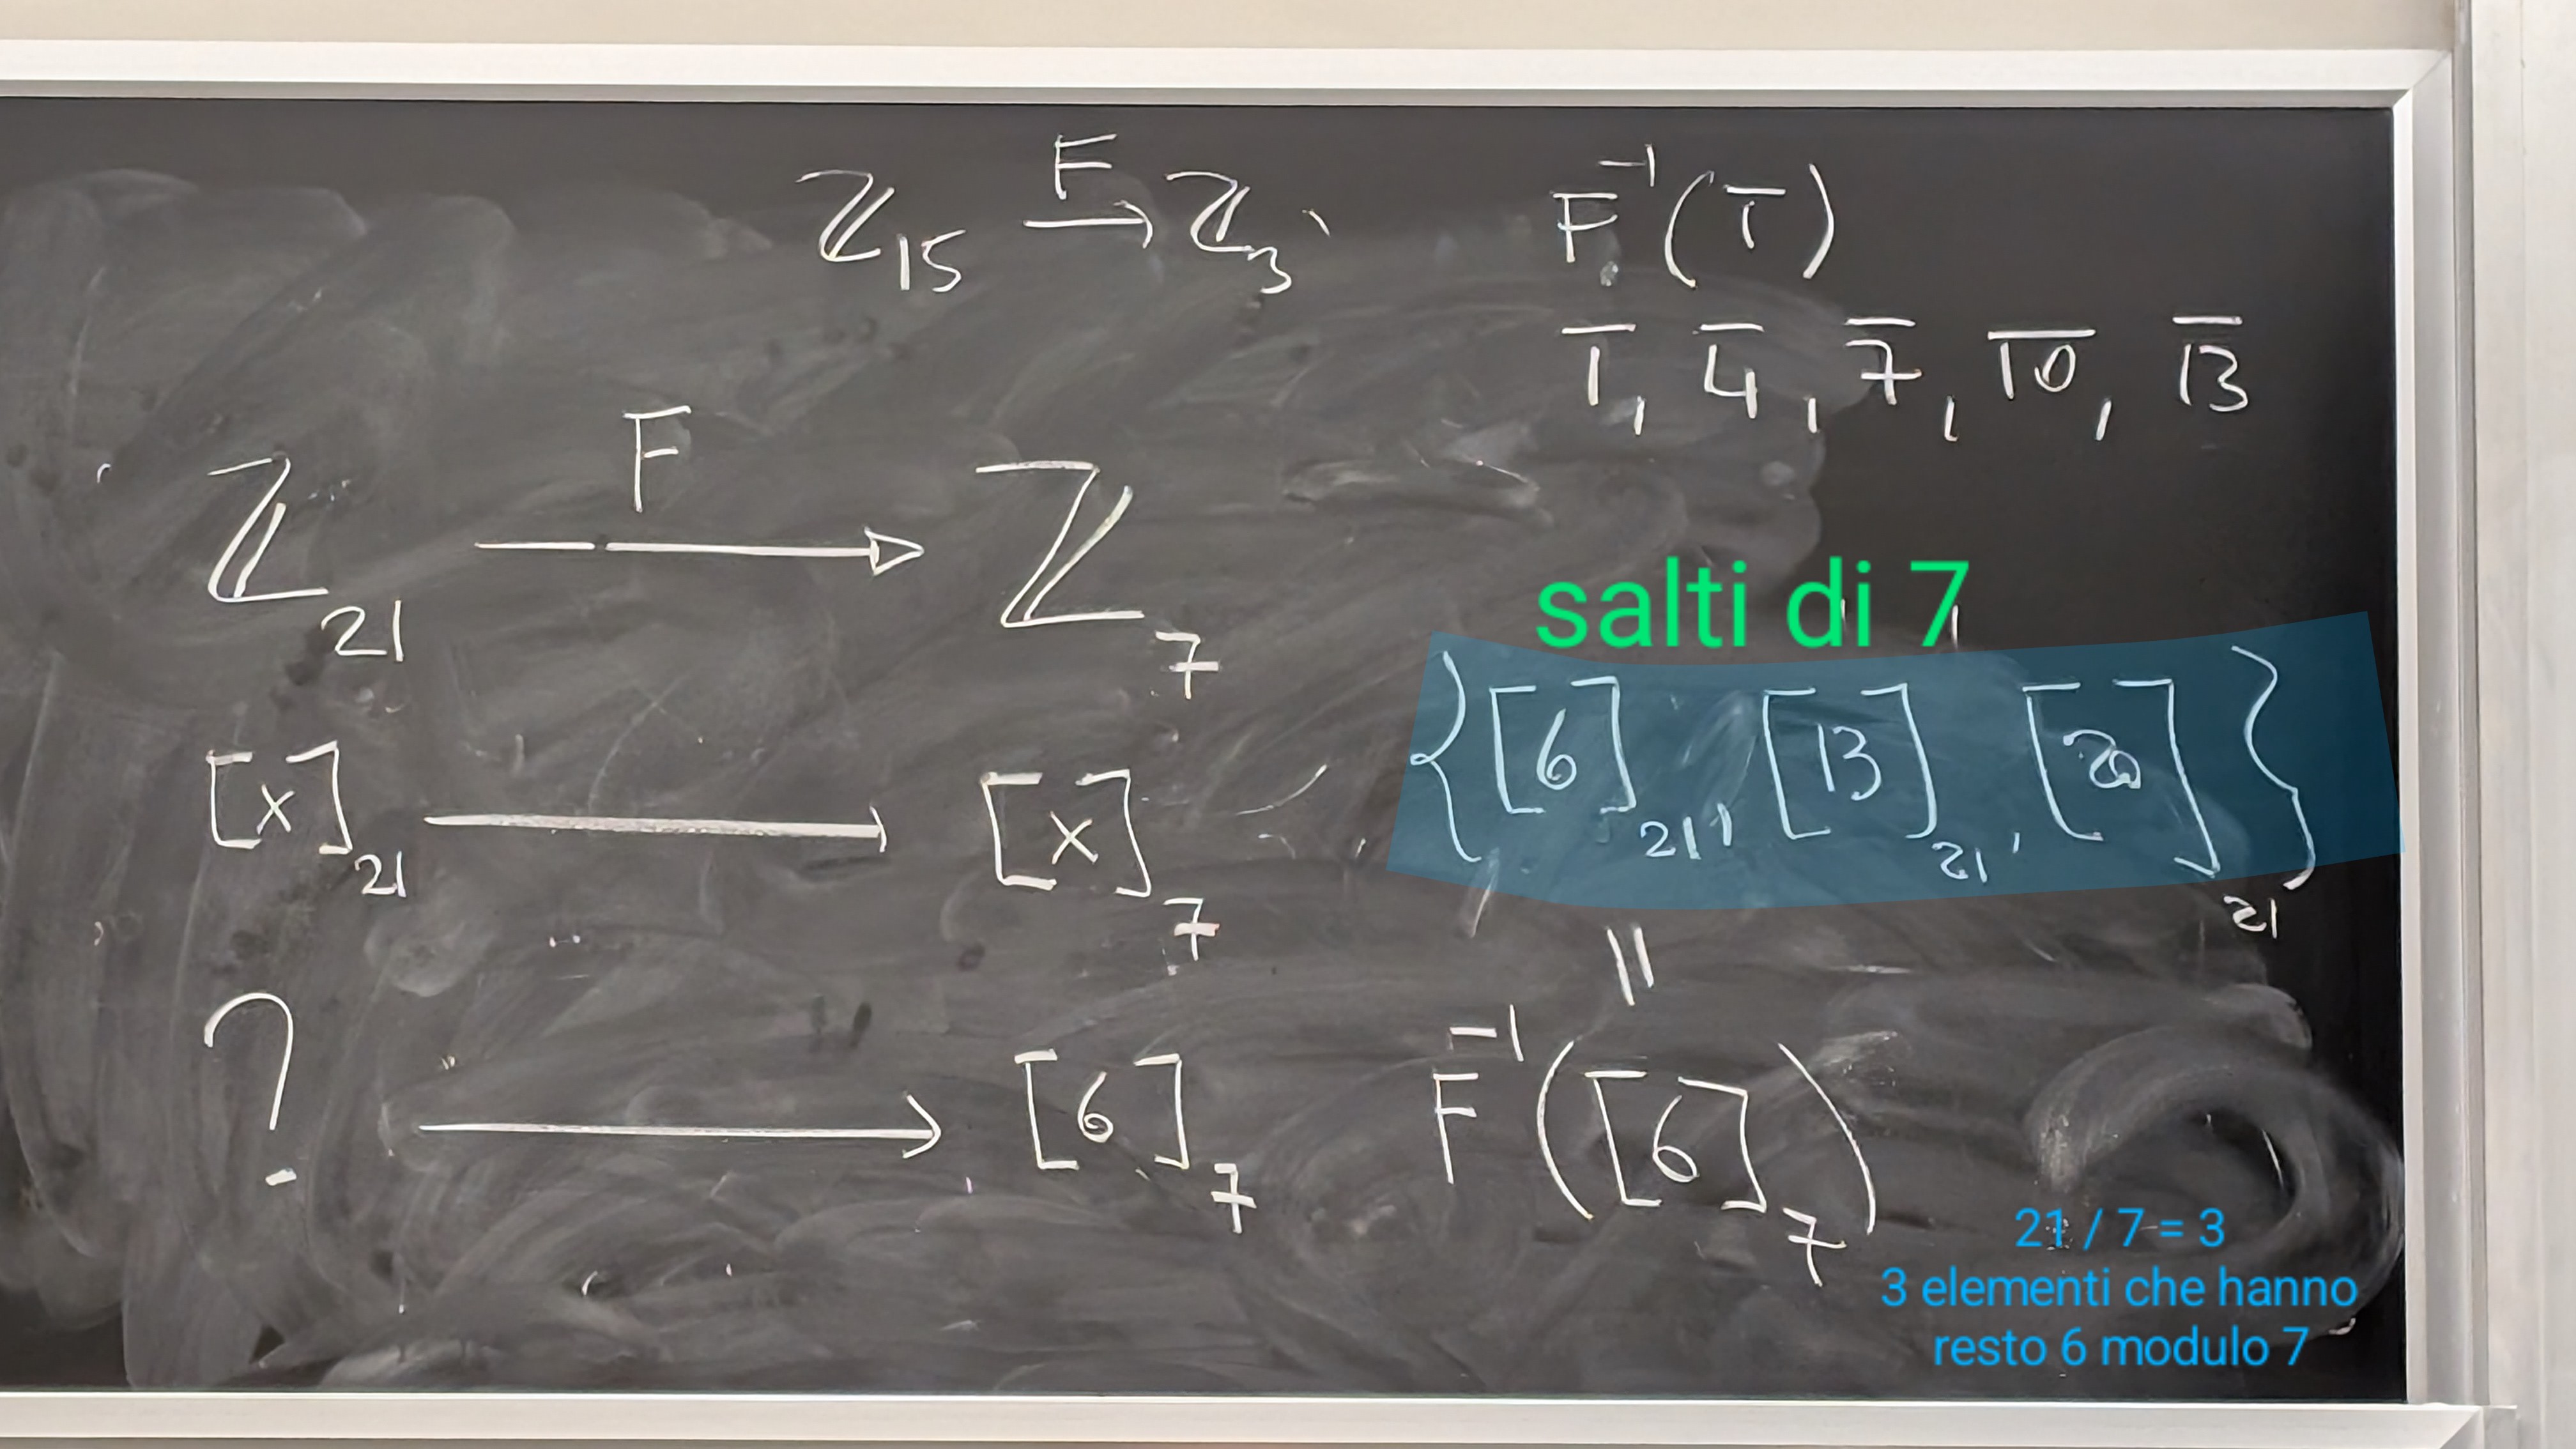 ℤ₁₅ —F→ ℤ₃ F⁻¹(1̅)
1̅, 4̅, 7̅, 1̅0̅, 1̅3̅
ℤ₂₁ —F→ ℤ₇
salti di 7
[x]₂₁ → [x]₇ {[6]₂₁, [13]₂₁, [20]₂₁}
=
? → [6]₇ F⁻¹([6]₇)
21 / 7 = 3
3 elementi che hanno
resto 6 modulo 7